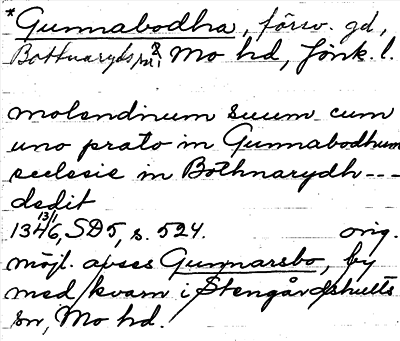 *Gunnabodha, försv. gd,
Bottnaryds sn, Mo hd, Jönk. l.
molendinum suum cum
uno prato in Gunnabodhum
ecclesie in Bothnarydh ---
dedit
13/1
1346, SD5, s. 524. orig.
möjl. avses Gunnarsbo, by
med kvarn i Stengårdshults
sn, Mo hd.